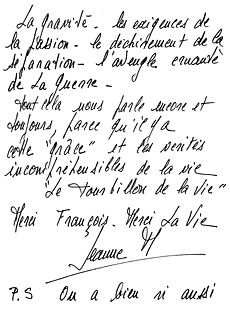 La gravité - les exigences de
la passion - le déchirement de la
séparation - l'aveugle cruauté
de La Guerre -
tout cela nous parle encore et
toujours, parce qu'il y a
cette "grâce" et les vérités
incompréhensibles de la vie
"Le tourbillon de la vie"
Merci François. Merci La Vie
Jeanne M
P.S On a bien ri aussi